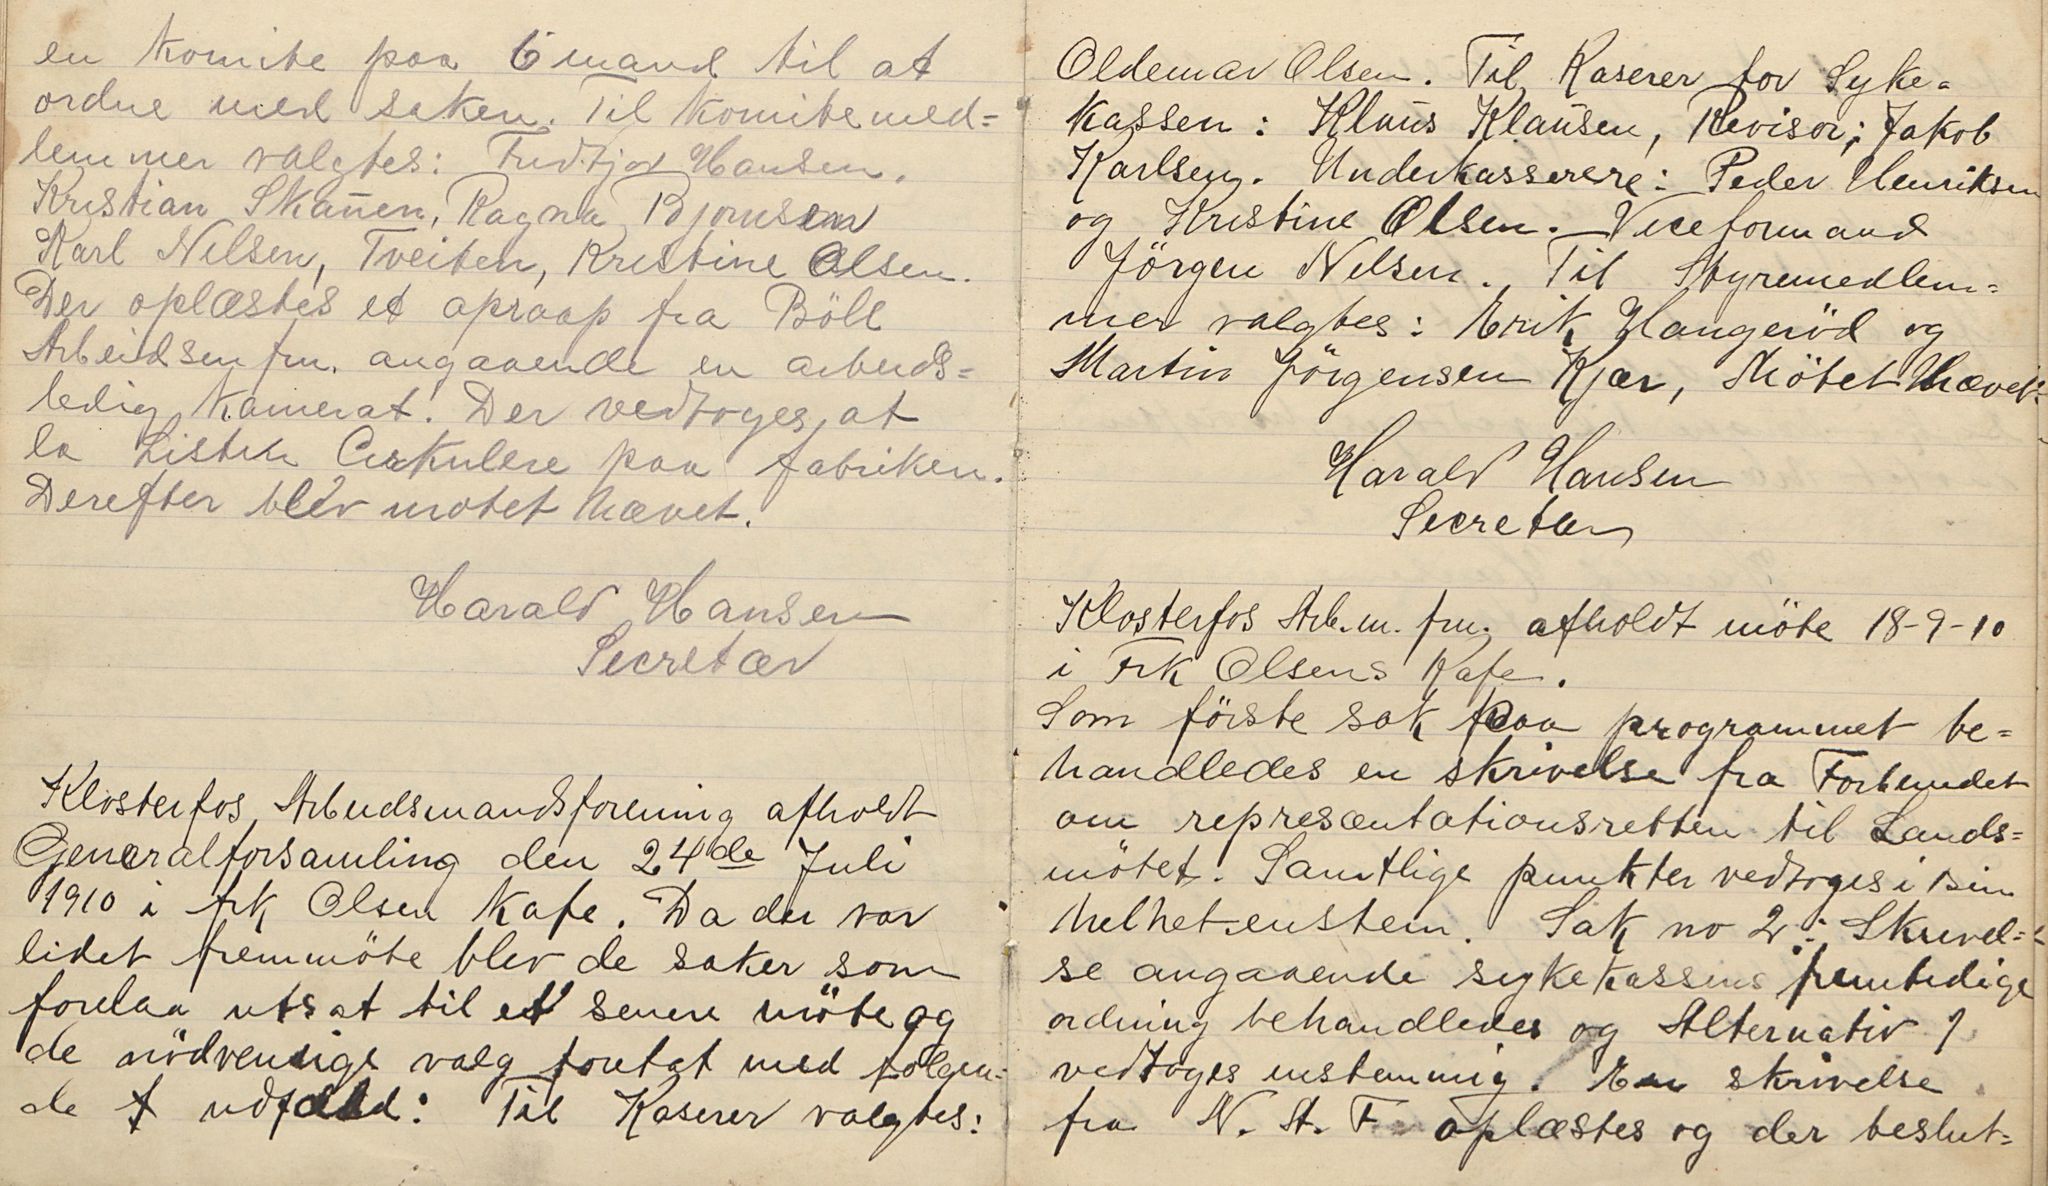 en komite paa 6 mand til at
ordne med saken. Til komitemed=
lemmer valgtes: Fridtjov Hansen.
Kristian Skauen, Ragna Bjornsen
Karl Nilsen, Tveiten, Kristine Olsen.
Der oplæstes et opraap fra Böle
Arbeidsm frn. angaaende en arbeids=
ledig kamerat. Der vedtoges, at
la Listen Cirkulere paa fabriken.
Derefter blev motet hævet.
Harald Hansen
Secretær
Klosterfos Arbeidsmandsforening afholdt
Generalforsamling den 24de Juli
1910 i frk Olsen Kafe. Da der var
lidet fremmöte blev de saker som
forelaa utsat til et senere möte og
de nödvendige valg foretat med folgen=
de udfald: Til Kaserer valgtes:
Oldemar Olsen. Til Kaserer for Syke=
kassen: Klaus Klausen, Revisor; Jakob
Karlsen. Underkasserere: Peder Henriksen
og Kristine Olsen. Viceformand
Jörgen Nilsen. Til Styremedlem=
mer valgtes: Erik Haugeröd og
Martin Jörgensen Kjær, Mötet Hævet.
Harald Hansen
Secretær
Klosterfos Arb.m. frn. afholdt möte 18-9-10
i Frk Olsens Kafe.
Som förste sak paa programmet be=
handledes en skrivelse fra Forbundet
om repræsentationsretten til Lands=
mötet. Samtlige punkter vedtoges i sin
helhet enstem. Sak no 2: Skrivel=
se angaaende sykekassens fremtidige
ordning behandledes og Alternativ 1
vedtoges enstemmig. En skrivelse
fra N. A. F oplæstes og der beslut=